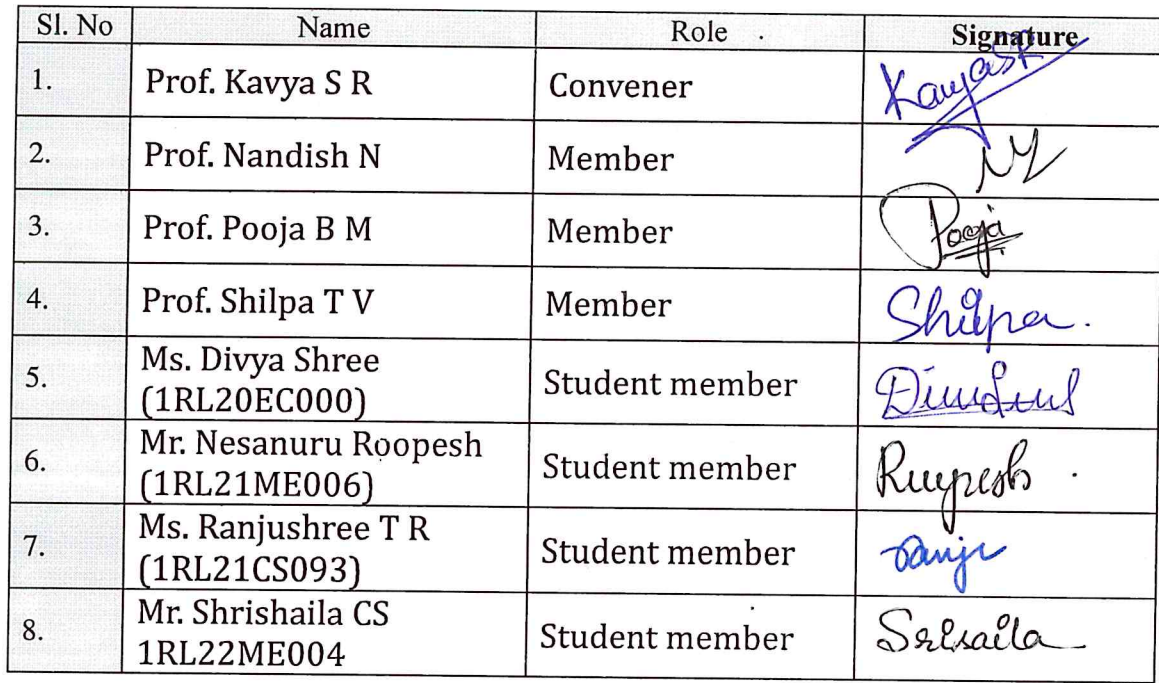 Sl. No Name Role Signature
1. Prof. Kavya S R Convener Kavyasr
2. Prof. Nandish N Member
3. Prof. Pooja B M Member Pooja
4. Prof. Shilpa T V Member Shilpa.
Ms. Divya Shree
5. (1RL20EC000) Student member
Mr. Nesanuru Roopesh
6. (1RL21ME006) Student member
Ms. Ranjushree T R
7. (1RL21CS093) Student member Ranju
Mr. Shrishaila CS
8. 1RL22ME004 Student member Srisaila